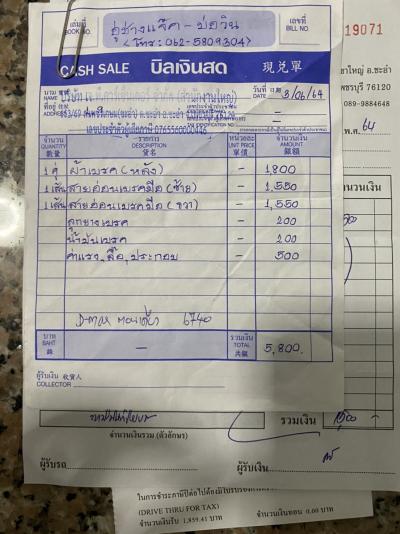 เล่มที่
BOOK NO.
อู่ช่างแจ๊ค - บ่อวิน
(โทร: 062-5809304)
เลขที่
BILL NO.
CASH SALE บิลเงินสด 現兑單
นาม
NAME
ที่อยู่
ADDRESS
วันที่
DATE
3/06/64
จำนวน
QUANTITY
數量
รายการ
DESCRIPTION
貨名
หน่วยละ
UNIT PRICE
單價
จำนวนเงิน
AMOUNT
銀額
1 คู่ ผ้าเบรค (หลัง) - 1,800
1 เส้น สายอ่อนเบรคมือ (ซ้าย) - 1,550
1 เส้น สายอ่อนเบรคมือ (ขวา) - 1,550
ลูกยางเบรค - 200
น้ำมันเบรค - 200
ค่าแรง รื้อ, ประกอบ - 500
D-max 6740
บาท
BAHT
銖
รวมเงิน
TOTAL
共銀
5,800.
ผู้รับเงิน 收貨人
COLLECTOR
19071
อ.ชะอำ
เพชรบุรี 76120
089-9884648
พ.ศ. 64
จำนวนเงิน
รวมเงิน
จำนวนเงินรวม (ตัวอักษร)
ผู้รับรถ
ผู้รับเงิน
(DRIVE THRU FOR TAX)
จำนวนเงินรับ 1,859.41 บาท
จำนวนเงินทอน 0.00 บาท